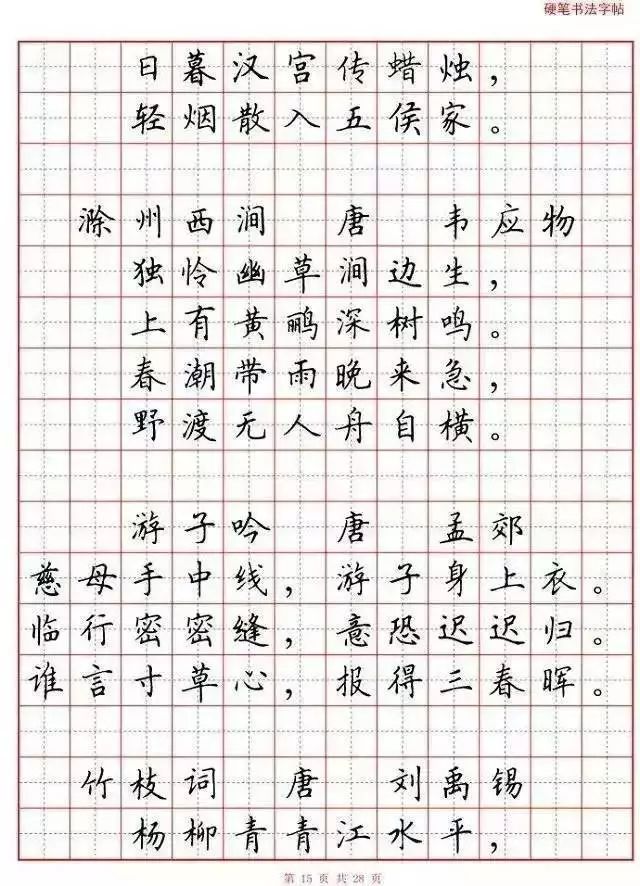 硬笔书法字帖
日暮汉宫传蜡烛，
轻烟散入五侯家。
滁州西涧 唐 韦应物
独怜幽草涧边生，
上有黄鹂深树鸣。
春潮带雨晚来急，
野渡无人舟自横。
游子吟 唐 孟郊
慈母手中线，游子身上衣。
临行密密缝，意恐迟迟归。
谁言寸草心，报得三春晖。
竹枝词 唐 刘禹锡
杨柳青青江水平，
第 15 页 共 28 页